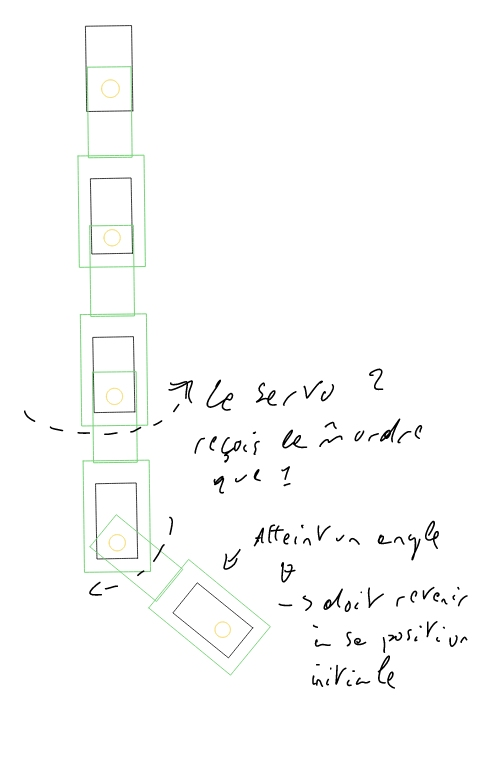 le servo 2
reçois le m̂ ordre
que 1
Atteint un angle
-> doit revenir
à sa position
initiale